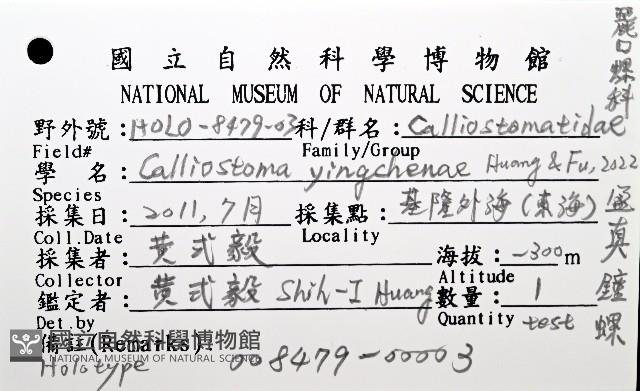 國立自然科學博物館
NATIONAL MUSEUM OF NATURAL SCIENCE
野外號：HOLO-8479-03 科/群名：Calliostomatidae
Field# Family/Group
學名：Calliostoma yingchenae Huang & Fu, 2022
Species
採集日：2011, 7月 採集點：基隆外海(東海)
Coll.Date Locality
採集者：黃式毅 海拔：-300m
Collector Altitude
鑑定者：黃式毅 Shih-I Huang 數量：1
Det.by Quantity test
備註(Remarks):
Holotype 008479-00003
國立自然科學博物館
NATIONAL MUSEUM OF NATURAL SCIENCE
麗口螺科
真鐘螺